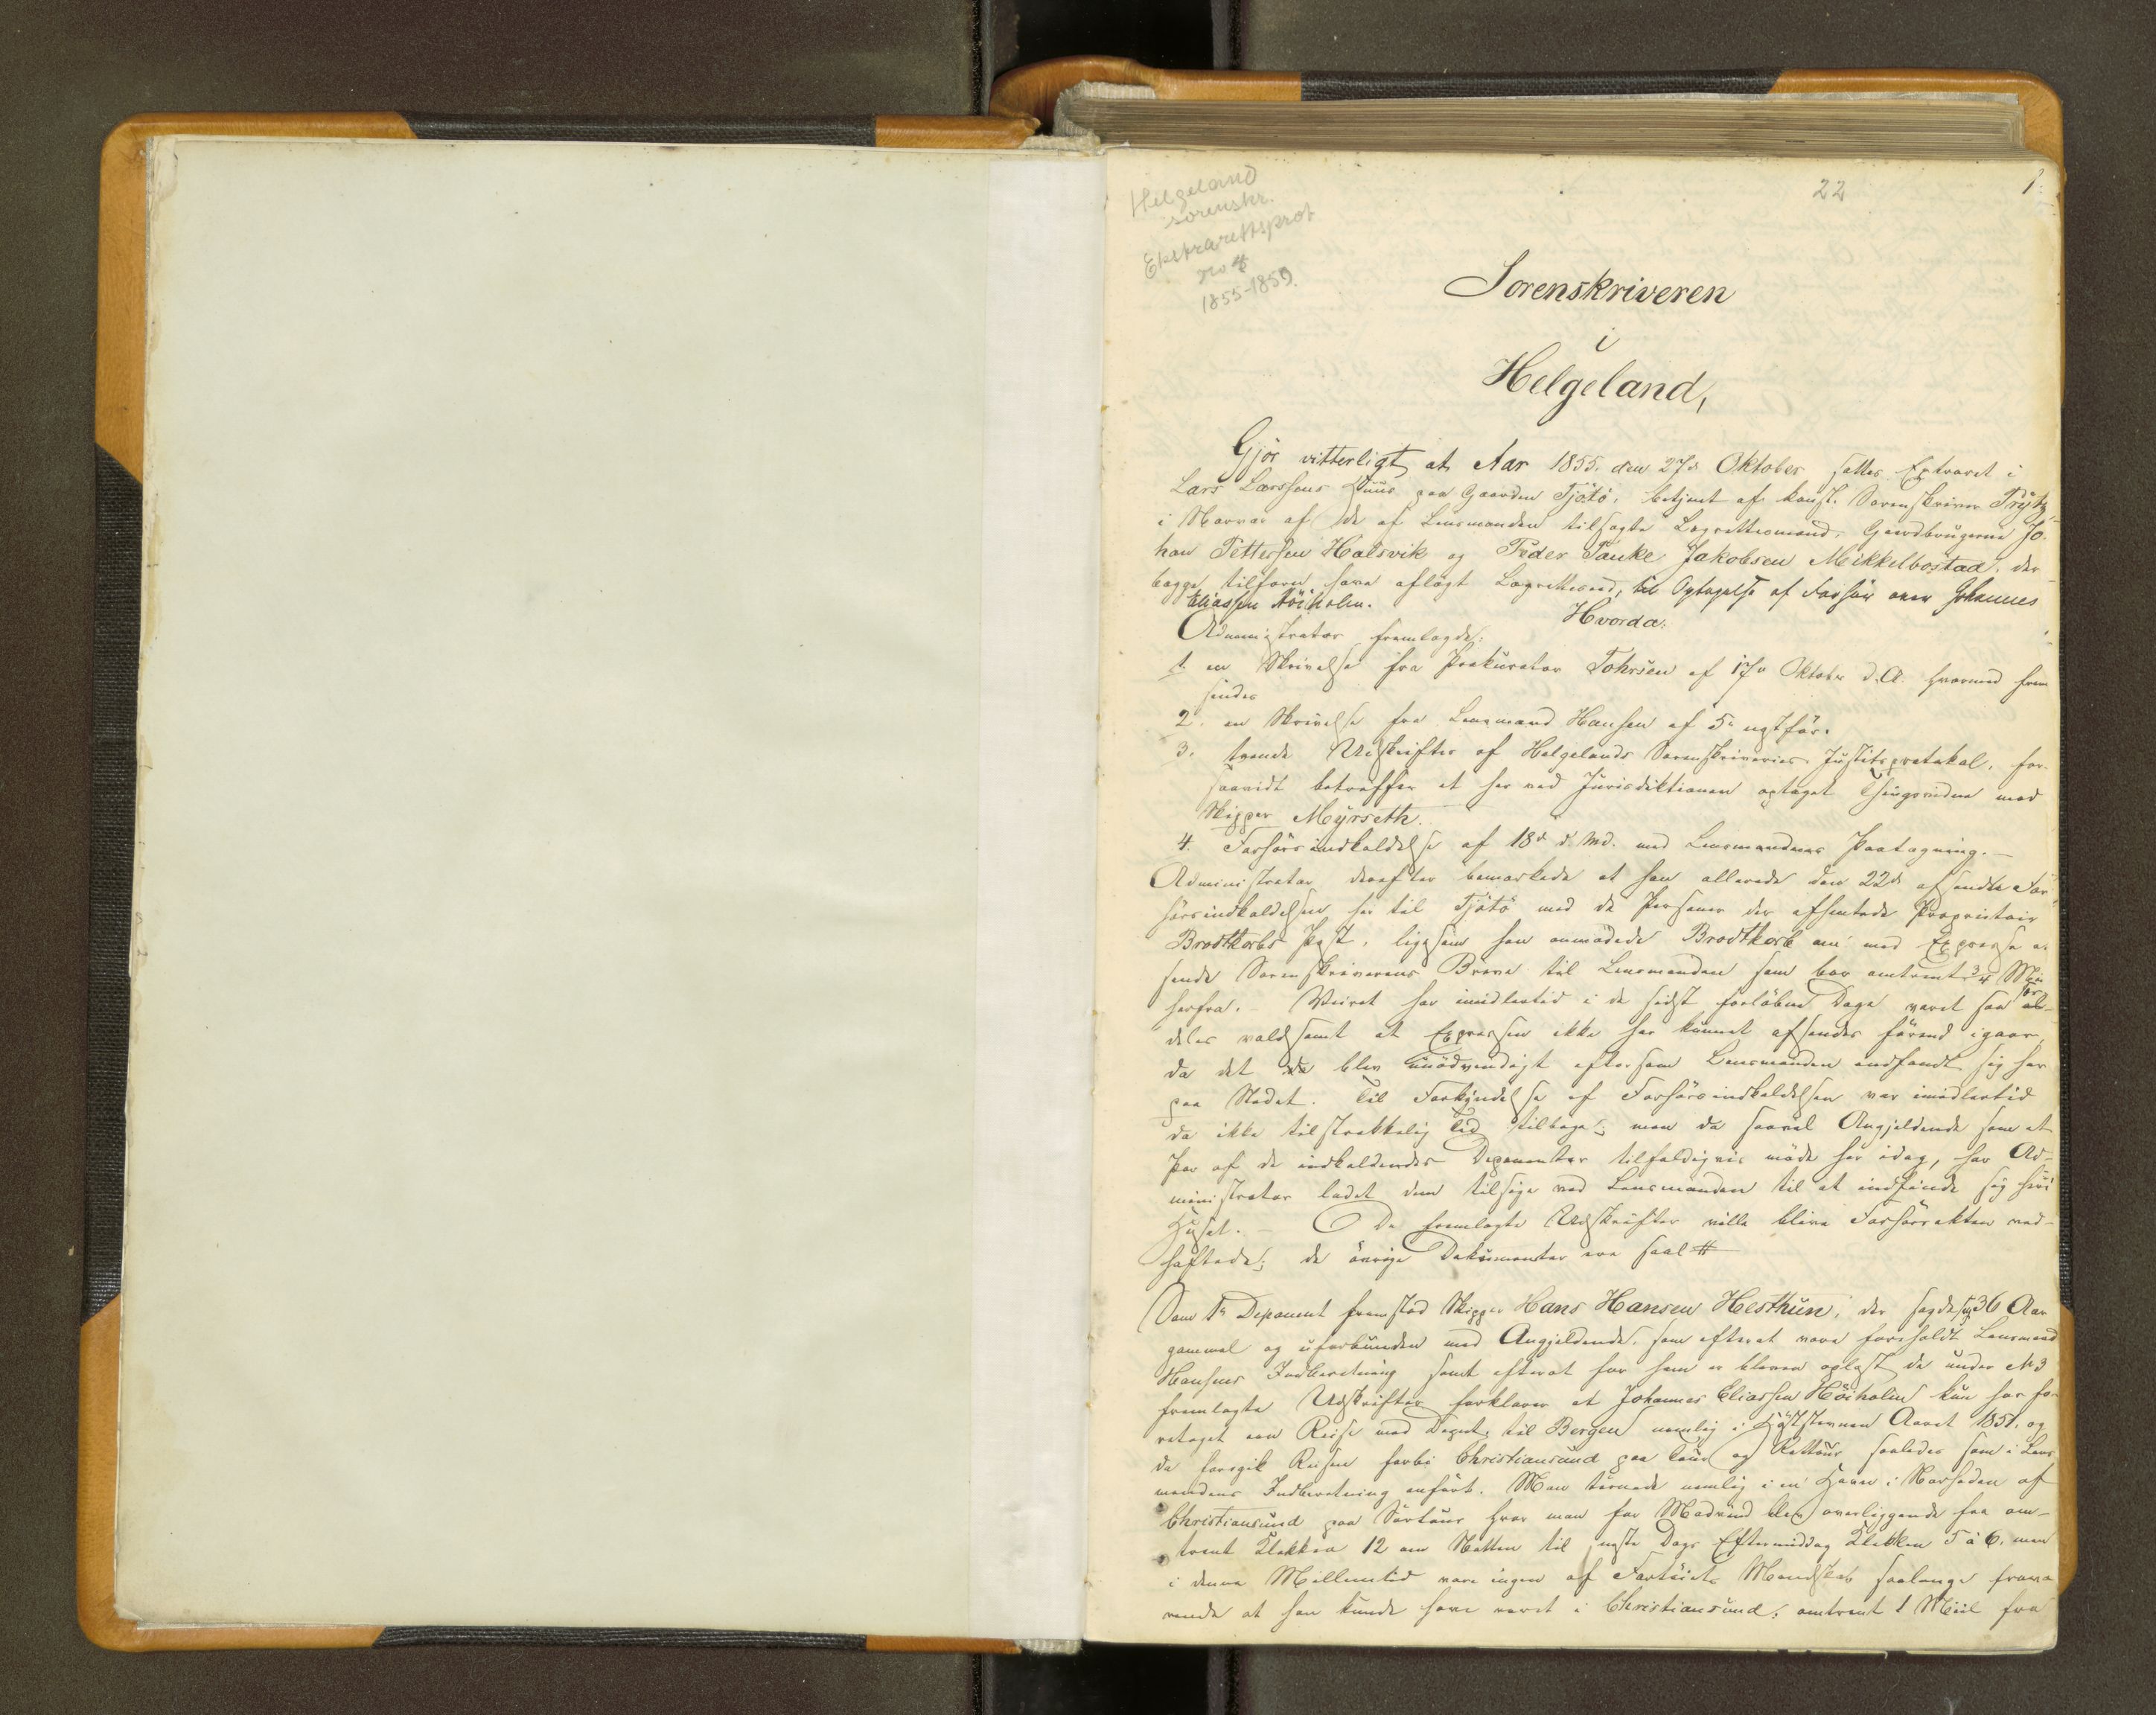 Helgeland
sorenskr.
Ekstrarettsprot
no 4
1855-1859.
22
1.
Sorenskriveren
i
Helgeland,
Gjör vitterligt, at Aar 1855. den 27de Oktober sattes Extraret i
Lars Larssens Huus paa Gaarden Tjötö, betjent af konst. Sorenskriver Trÿtz
i Nærvær af de af Lensmanden tilsagte Lagrettesmænd, Gaardbrugerne Jo-
han Pettersen Halsvik og Peder Tanke Jakobsen Mikkelbostad, der
begge tilforn have aflagt Lagretteseed, til Optagelse af Forhör over Johannes
Eliassen Höiholm.
Hvorda:
Administrator fremlagde:
1. en Skrivelse fra Prokurator Tohrsen af 17de Oktober d. A. hvormed frem
sendes
2. en Skrivelse fra Lensmand Hansen af 5te nÿstfør.
3. tvende Udskrifter af Helgelands Sorenskriveries Justitsprotokol, for-
saavidt betræffer et her ved Jurisdiktionen optaget Thingsvidne mod
Skipper Mÿrseth.
4. Forhörsindkaldelse af 18de d. Md. med Lensmandens Paategning. –
Administrator derefter bemærkede at han allerede den 22de afsendte For-
hörsindkaldelsen her til Tjötö med de Personer der afhentede Proprietair
Brodtkorbs Post, ligesom han anmodede Brodtkorb om med Expresse at
sende Sorenskriverens Breve til Lensmanden som bor omtrent 3/4 Miil
herfra. – Veiret har imidlertid i de sidst forløbne Dage været saa
deles voldsomt at Expressen ikke har kunnet afsendes förend igaar,
da det blev unödvendigt eftersom Lensmanden indfandt sig her
paa Stedet. Til Forkÿndelse af Forhörsindkaldelsen var imidlertid
da ikke tilstrækkelig Tid tilbage; men da saavel Angjeldende som et
Par af de indkaldendes Deponenter tilfældigviis möde her idag, har Ad-
ministrator ladet dem tilsige ved Lensmanden til at indfinde sig her i
Huset. – De fremlagte Udskrifter ville blive Forhörsakten ved-
hæftede; de övrige Dokumenter ere saal #
Som 1ste Deponent fremstod Skipper Hans Hansen Hesthun, der sagde sig 36 Aar
gammel og uforbunden med Angjeldende, som efterat være foreholdt Lensmand
Hansens Indberetning samt efterat for ham er bleven oplæst de under No 3
fremlagte Udskrifter forklarer at Johannes Eliassen Höiholm kun har fo-
retaget een Reise med Depnt. til Bergen nemlig i Höststevnen Aaret 1851, og
da foregik Reisen forbi Christiansund paa Tour og Rettour saaledes som i Lens
mandens Indberetning anfört. Man ternede nemlig i en Havn i Nærheden af
Christiansund paa Sörtour hvor man for Modvind blev overliggende fra om-
trent Klokken 12 om Natten til næste Dags Eftermiddag Klokken 5 à 6, men
i denne Mellemtid vare ingen af Fartöiets Mandskab saalænge fravæ
rende at han kunde have været i Christiansund, omtrent 1 Miil fra